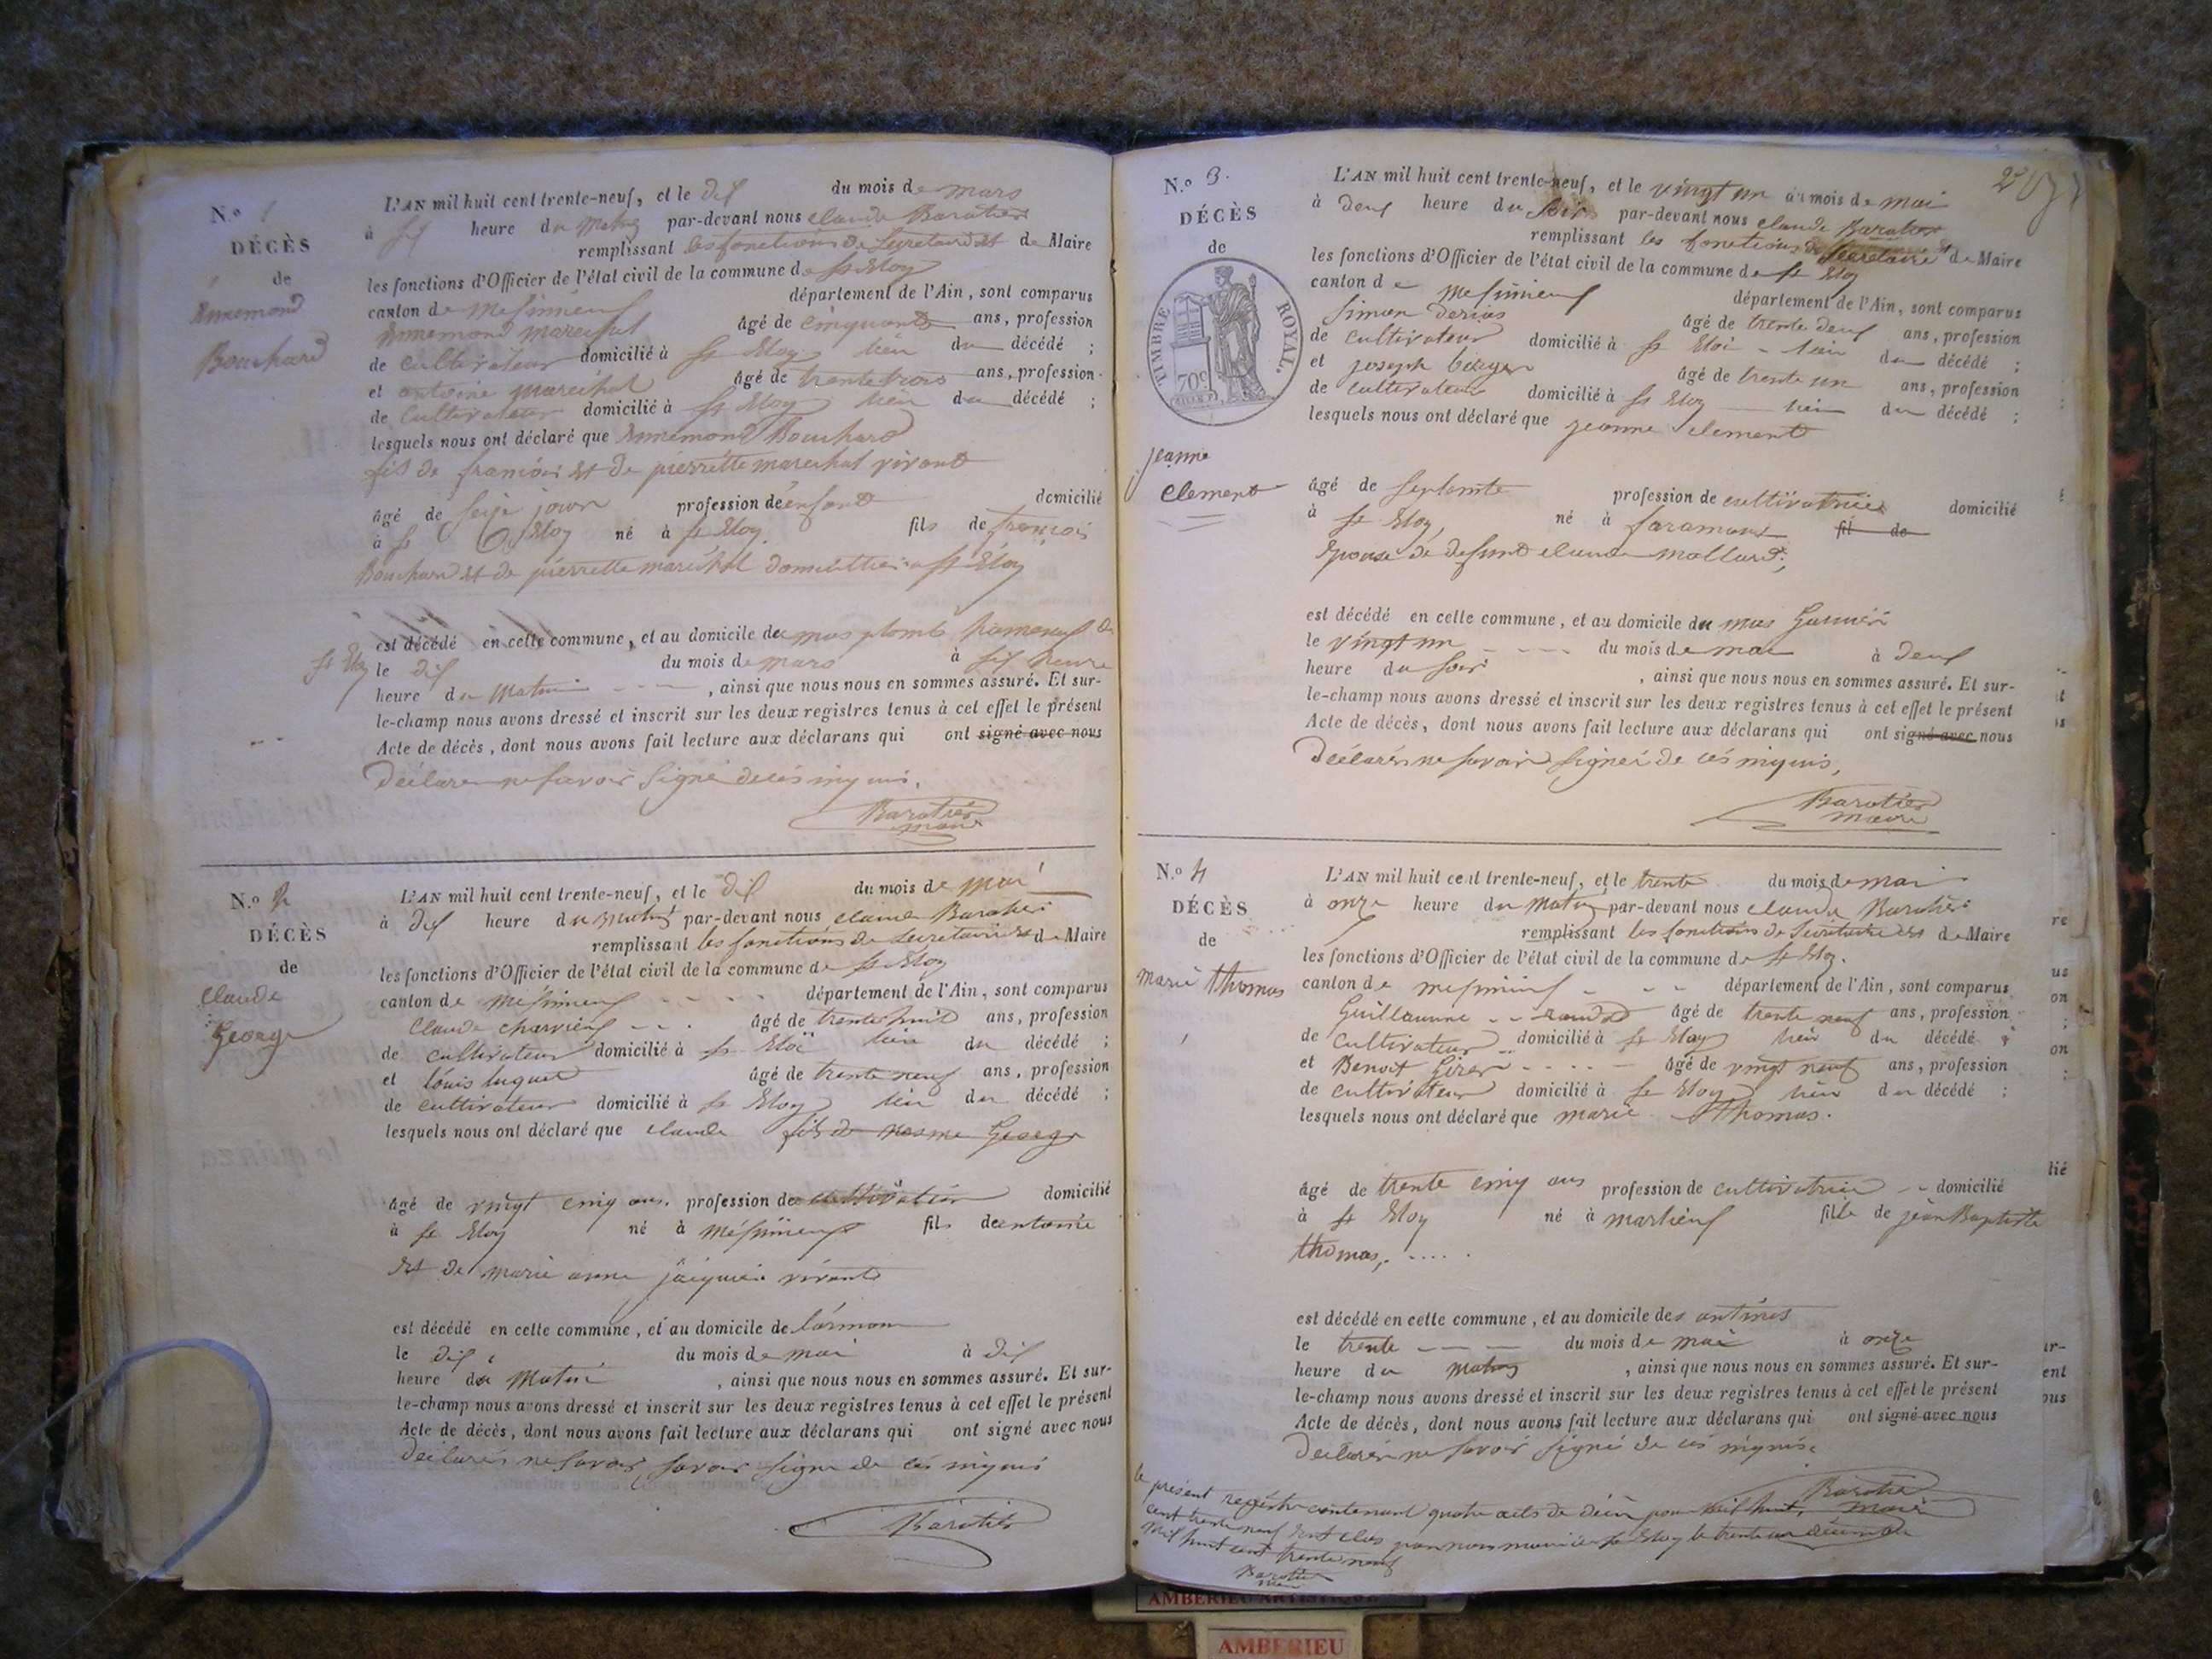 N.o 1
DÉCÈS
de
Annemond
Bouchard
L'AN mil huit cent trente-neuf, et le dix du mois de mars
à six heure du matin par-devant nous claude Baratier
remplissant les fonctions de Secretaire et de Maire
les fonctions d'Officier de l'état civil de la commune de st Eloy
canton de Meximieux département de l'Ain, sont comparus
Annemond marechal âgé de cinquante ans, profession
de cultivateur domicilié à st Eloy du décédé ;
et antoine marechal âgé de trente trois ans, profession
de cultivateur domicilié à st Eloy du décédé ;
lesquels nous ont déclaré que Annemond Bouchard
fils de francois et de pierrette marechal vivant
âgé de seize jours profession de enfant domicilié
à st Eloy né à st Eloy. fils de francois
Bouchard et de pierrette marechal domicillier a st Eloy
est décédé en cette commune, et au domicile de mas plomb hameau de
st Eloy le dix du mois de mars à six heure
heure du matin , ainsi que nous nous en sommes assuré. Et sur-
le-champ nous avons dressé et inscrit sur les deux registres tenus à cet effet le présent
Acte de décès, dont nous avons fait lecture aux déclarans qui ont signé avec nous
Déclaré ne savoir signé de ces inquis.
Baratier
maire
N.o 2
DÉCÈS
de
Claude
George
L'AN mil huit cent trente-neuf, et le dix du mois de mai
à dix heure du matin par-devant nous claude Baratier
remplissant les fonctions de secretaire et de Maire
les fonctions d'Officier de l'état civil de la commune de st Eloy
canton de meximieux département de l'Ain, sont comparus
Claude charvieux âgé de trente huit ans, profession
de cultivateur domicilié à st Eloi du décédé ;
et louis luquet âgé de trente neuf ans, profession
de cultivateur domicilié à st Eloy du décédé ;
lesquels nous ont déclaré que claude fils de George
âgé de vingt cinq ans. profession de cultivateur domicilié
à st Eloy né à méximieux fils de antoine
et de marie anne vivante
est décédé en cette commune, et au domicile de
le dix du mois de mai à dix
heure du matin , ainsi que nous nous en sommes assuré. Et sur-
le-champ nous avons dressé et inscrit sur les deux registres tenus à cet effet le présent
Acte de décès, dont nous avons fait lecture aux déclarans qui ont signé avec nous
déclarés ne savoir savoir signe de ces inquis
Baratier
N.o 3.
DÉCÈS
de
TIMBRE ROYAL.
70c
jeanne
Clement
L'AN mil huit cent trente-neuf, et le vingt un du mois de mai
à deux heure du soir par-devant nous claude Baratier
remplissant les fonctions de secretaire et de Maire
les fonctions d'Officier de l'état civil de la commune de st Eloy
canton de meximieux département de l'Ain, sont comparus
Simon âgé de trente deux ans, profession
de cultivateur domicilié à st Eloi du décédé ;
et joseph âgé de trente un ans, profession
de cultivateur domicilié à st Eloy du décédé ;
lesquels nous ont déclaré que jeanne clement
âgé de septente profession de cultivatrice domicilié
à st Eloy, né à faramans fil de
Epouse de defunt claude mollard;
est décédé en cette commune, et au domicile du mas
le vingt un du mois de mai à deux
heure du soir , ainsi que nous nous en sommes assuré. Et sur-
le-champ nous avons dressé et inscrit sur les deux registres tenus à cet effet le présent
Acte de décès, dont nous avons fait lecture aux déclarans qui ont signé avec nous
Déclarés ne savoir signer de ces inquis,
Baratier
maire
N.o 4
DÉCÈS
de
marie thomas
L'AN mil huit cent trente-neuf, et le trente du mois de mai
à onze heure du matin par-devant nous claude Baratier
remplissant les fonctions de secretaire et de Maire
les fonctions d'Officier de l'état civil de la commune de st Eloy.
canton de meximieux département de l'Ain, sont comparus
Guillaume âgé de trente neuf ans, profession
de cultivateur domicilié à st Eloy du décédé ;
et Benoit âgé de vingt neuf ans, profession
de cultivateur domicilié à st Eloy du décédé ;
lesquels nous ont déclaré que marie thomas.
âgé de trente cinq ans profession de cultivatrice domicilié
à st Eloy né à marlieux fille de jean Baptiste
thomas,
est décédé en cette commune, et au domicile des
le trente du mois de mai à onze
heure du matin , ainsi que nous nous en sommes assuré. Et sur-
le-champ nous avons dressé et inscrit sur les deux registres tenus à cet effet le présent
Acte de décès, dont nous avons fait lecture aux déclarans qui ont signé avec nous
Déclarés ne savoir signé de ces inquis.
Baratier
maire
le présent registre contenant quatre acts de décès pour mil huit
cent trente neuf clos par nous maire de st Eloy le trente un décembre
mil huit cent trente neuf
Baratier
maire
AMBERIEU ARTISTIQUE
AMBERIEU